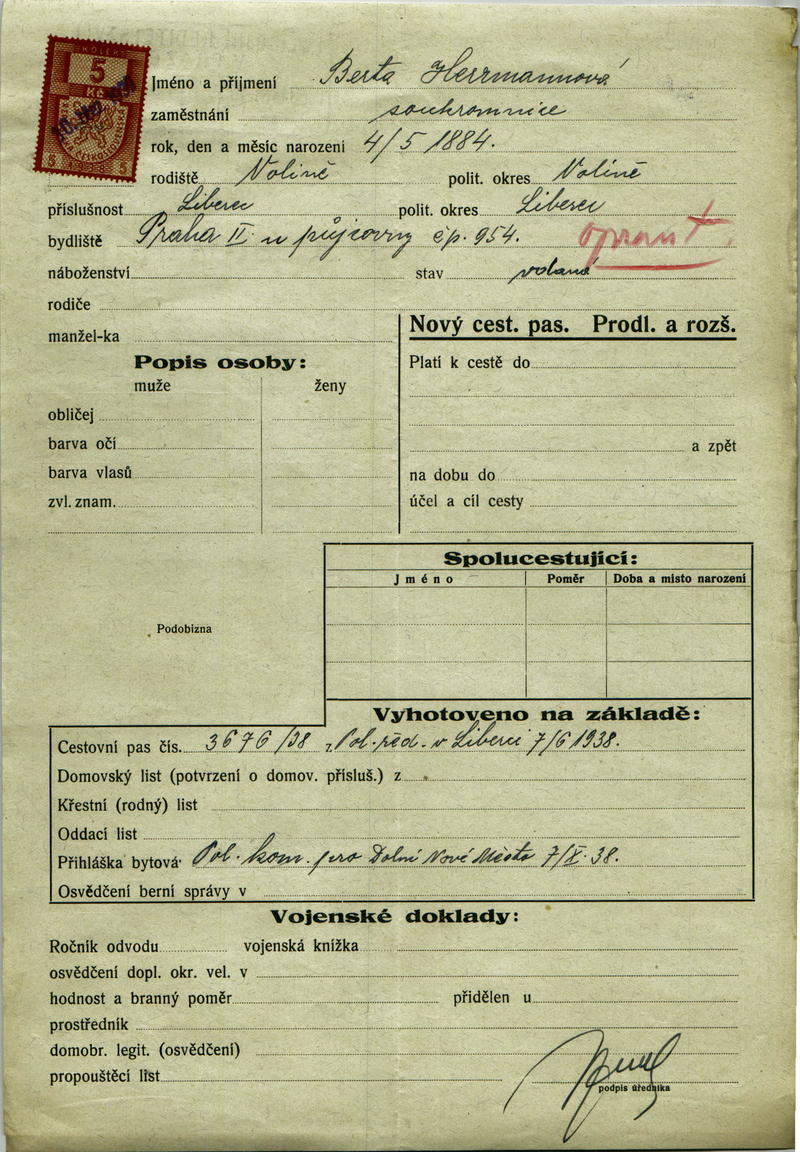 KOLEK
5
Kč
ČESKOSLOVENSKÁ
Jméno a příjmení Berta Herrmannová
zaměstnání soukromnice
rok, den a měsíc narození 4/5 1884.
rodiště Volině polit. okres Volině
příslušnost Liberec polit. okres Liberec
bydliště Praha II. u půjčovny čp. 954.
náboženství stav vdaná
rodiče
manžel-ka
Nový cest. pas. Prodl. a rozš.
Popis osoby:
muže ženy
obličej
barva očí
barva vlasů
zvl. znam.
Platí k cestě do
a zpět
na dobu do
účel a cíl cesty
Podobizna
Spolucestující:
Jméno Poměr Doba a místo narození
Vyhotoveno na základě:
Cestovní pas čís. 3676/38 z Pol. řed. v Liberci 7/6 1938.
Domovský list (potvrzení o domov. přísluš.) z
Křestní (rodný) list
Oddací list
Přihláška bytová Pol. kom. pro Dolní Nové Město 7/X. 38.
Osvědčení berní správy v
Vojenské doklady:
Ročník odvodu vojenská knížka
osvědčení dopl. okr. vel. v
hodnost a branný poměr přidělen u
prostředník
domobr. legit. (osvědčení)
propouštěcí list
podpis úředníka